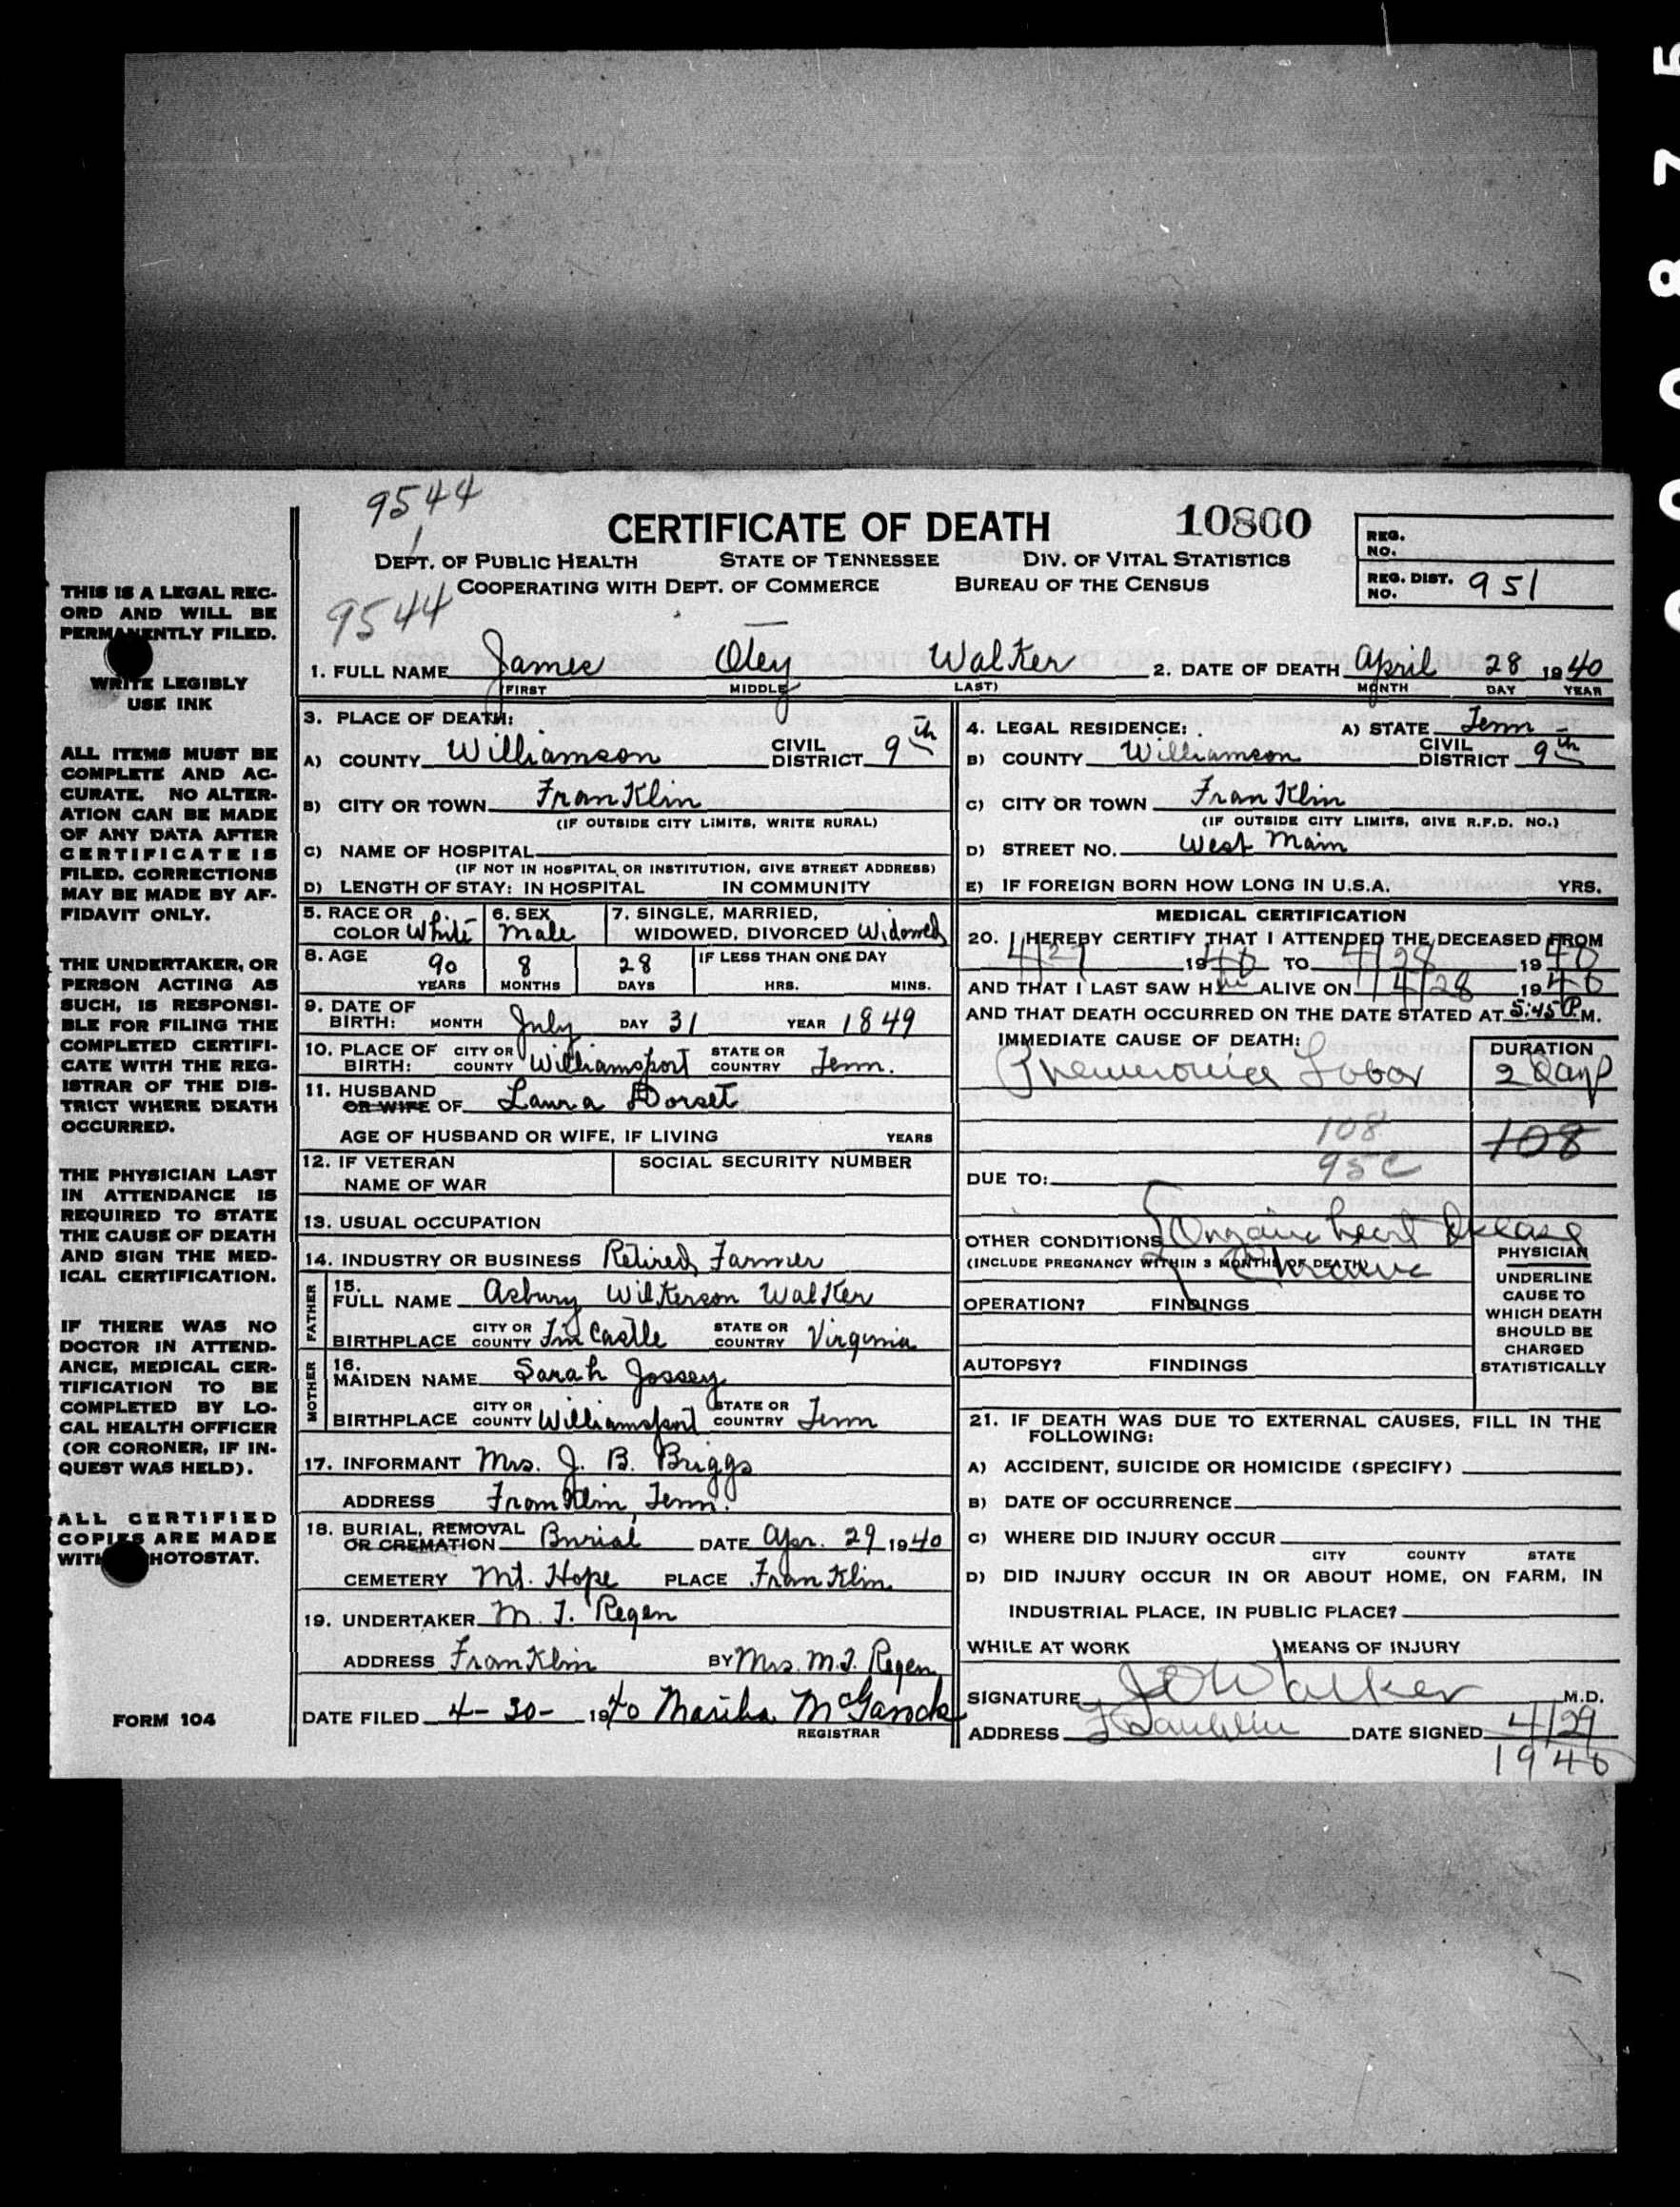 9544
CERTIFICATE OF DEATH 10800
REG. NO.
DEPT. OF PUBLIC HEALTH STATE OF TENNESSEE DIV. OF VITAL STATISTICS
COOPERATING WITH DEPT. OF COMMERCE BUREAU OF THE CENSUS
REG. DIST. NO. 951
9544
1. FULL NAME James Otey Walker 2. DATE OF DEATH April 28 1940
(FIRST MIDDLE LAST) MONTH DAY YEAR
THIS IS A LEGAL REC-
ORD AND WILL BE
PERMANENTLY FILED.
WRITE LEGIBLY
USE INK
ALL ITEMS MUST BE
COMPLETE AND AC-
CURATE. NO ALTER-
ATION CAN BE MADE
OF ANY DATA AFTER
CERTIFICATE IS
FILED. CORRECTIONS
MAY BE MADE BY AF-
FIDAVIT ONLY.
THE UNDERTAKER, OR
PERSON ACTING AS
SUCH, IS RESPONSI-
BLE FOR FILING THE
COMPLETED CERTIFI-
CATE WITH THE REG-
ISTRAR OF THE DIS-
TRICT WHERE DEATH
OCCURRED.
THE PHYSICIAN LAST
IN ATTENDANCE IS
REQUIRED TO STATE
THE CAUSE OF DEATH
AND SIGN THE MED-
ICAL CERTIFICATION.
IF THERE WAS NO
DOCTOR IN ATTEND-
ANCE, MEDICAL CER-
TIFICATION TO BE
COMPLETED BY LO-
CAL HEALTH OFFICER
(OR CORONER, IF IN-
QUEST WAS HELD).
ALL CERTIFIED
COPIES ARE MADE
WITH PHOTOSTAT.
FORM 104
3. PLACE OF DEATH:
A) COUNTY Williamson CIVIL DISTRICT 9th
B) CITY OR TOWN Franklin
(IF OUTSIDE CITY LIMITS, WRITE RURAL)
C) NAME OF HOSPITAL
(IF NOT IN HOSPITAL OR INSTITUTION, GIVE STREET ADDRESS)
D) LENGTH OF STAY: IN HOSPITAL IN COMMUNITY
5. RACE OR COLOR White 6. SEX Male 7. SINGLE, MARRIED, WIDOWED, DIVORCED Widowed
8. AGE 90 8 28 IF LESS THAN ONE DAY
YEARS MONTHS DAYS HRS. MINS.
9. DATE OF BIRTH: MONTH July DAY 31 YEAR 1849
10. PLACE OF BIRTH: CITY OR COUNTY Williamsport STATE OR COUNTRY Tenn.
11. HUSBAND OR WIFE OF Laura Dorset
AGE OF HUSBAND OR WIFE, IF LIVING YEARS
12. IF VETERAN NAME OF WAR SOCIAL SECURITY NUMBER
13. USUAL OCCUPATION
14. INDUSTRY OR BUSINESS Retired Farmer
FATHER
15. FULL NAME Asbury Wilkerson Walker
BIRTHPLACE CITY OR COUNTY Fin Castle STATE OR COUNTRY Virginia
MOTHER
16. MAIDEN NAME Sarah Jossey
BIRTHPLACE CITY OR COUNTY Williamsport STATE OR COUNTRY Tenn
17. INFORMANT Mrs. J. B. Briggs
ADDRESS Franklin, Tenn.
18. BURIAL, REMOVAL OR CREMATION Burial DATE Apr. 29 1940
CEMETERY Mt. Hope PLACE Franklin
19. UNDERTAKER M. T. Regen
ADDRESS Franklin BY Mrs. M. T. Regen
DATE FILED 4-30- 1940 Martha McGavock
REGISTRAR
4. LEGAL RESIDENCE: A) STATE Tenn
B) COUNTY Williamson CIVIL DISTRICT 9th
C) CITY OR TOWN Franklin
(IF OUTSIDE CITY LIMITS, GIVE R.F.D. NO.)
D) STREET NO. West Main
E) IF FOREIGN BORN HOW LONG IN U.S.A. YRS.
MEDICAL CERTIFICATION
20. I HEREBY CERTIFY THAT I ATTENDED THE DECEASED FROM
4/27 1940 TO 4/28 1940
AND THAT I LAST SAW Him ALIVE ON 4/28 1940
AND THAT DEATH OCCURRED ON THE DATE STATED AT 5:45 P.M.
IMMEDIATE CAUSE OF DEATH: DURATION
Pneumonia Lobar 2 Days
108 108
95c
DUE TO:
OTHER CONDITIONS Organic heart disease
(INCLUDE PREGNANCY WITHIN 3 MONTHS OF DEATH) Chronic
OPERATION? FINDINGS
AUTOPSY? FINDINGS
PHYSICIAN
UNDERLINE
CAUSE TO
WHICH DEATH
SHOULD BE
CHARGED
STATISTICALLY
21. IF DEATH WAS DUE TO EXTERNAL CAUSES, FILL IN THE
FOLLOWING:
A) ACCIDENT, SUICIDE OR HOMICIDE (SPECIFY)
B) DATE OF OCCURRENCE
C) WHERE DID INJURY OCCUR
CITY COUNTY STATE
D) DID INJURY OCCUR IN OR ABOUT HOME, ON FARM, IN
INDUSTRIAL PLACE, IN PUBLIC PLACE?
WHILE AT WORK MEANS OF INJURY
SIGNATURE J O Walker M.D.
ADDRESS Franklin DATE SIGNED 4/29
1940